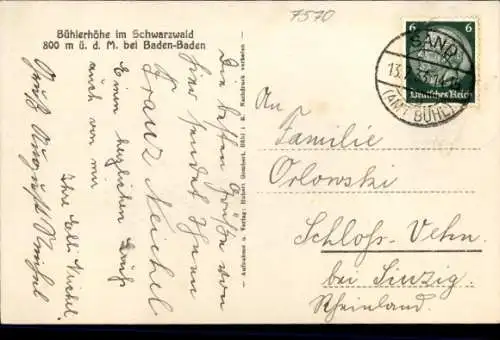 7570
Bühlerhöhe im Schwarzwald
800 m ü. d. M. bei Baden-Baden
6 6
Deutsches Reich
SAND
13.
(AMT BÜHL)
Die besten Grüße von
hier sendet Ihnen
Franz Meichel
Einen herzlichen Gruß
auch von mir
Ihre
Gruß August Meichel
Aufnahme u. Verlag: Hubert Gombert, Bühl i. B. Nachdruck verboten
An
Familie
Orlowski
Schloss-Vehn
bei Sinzig
Rheinland.